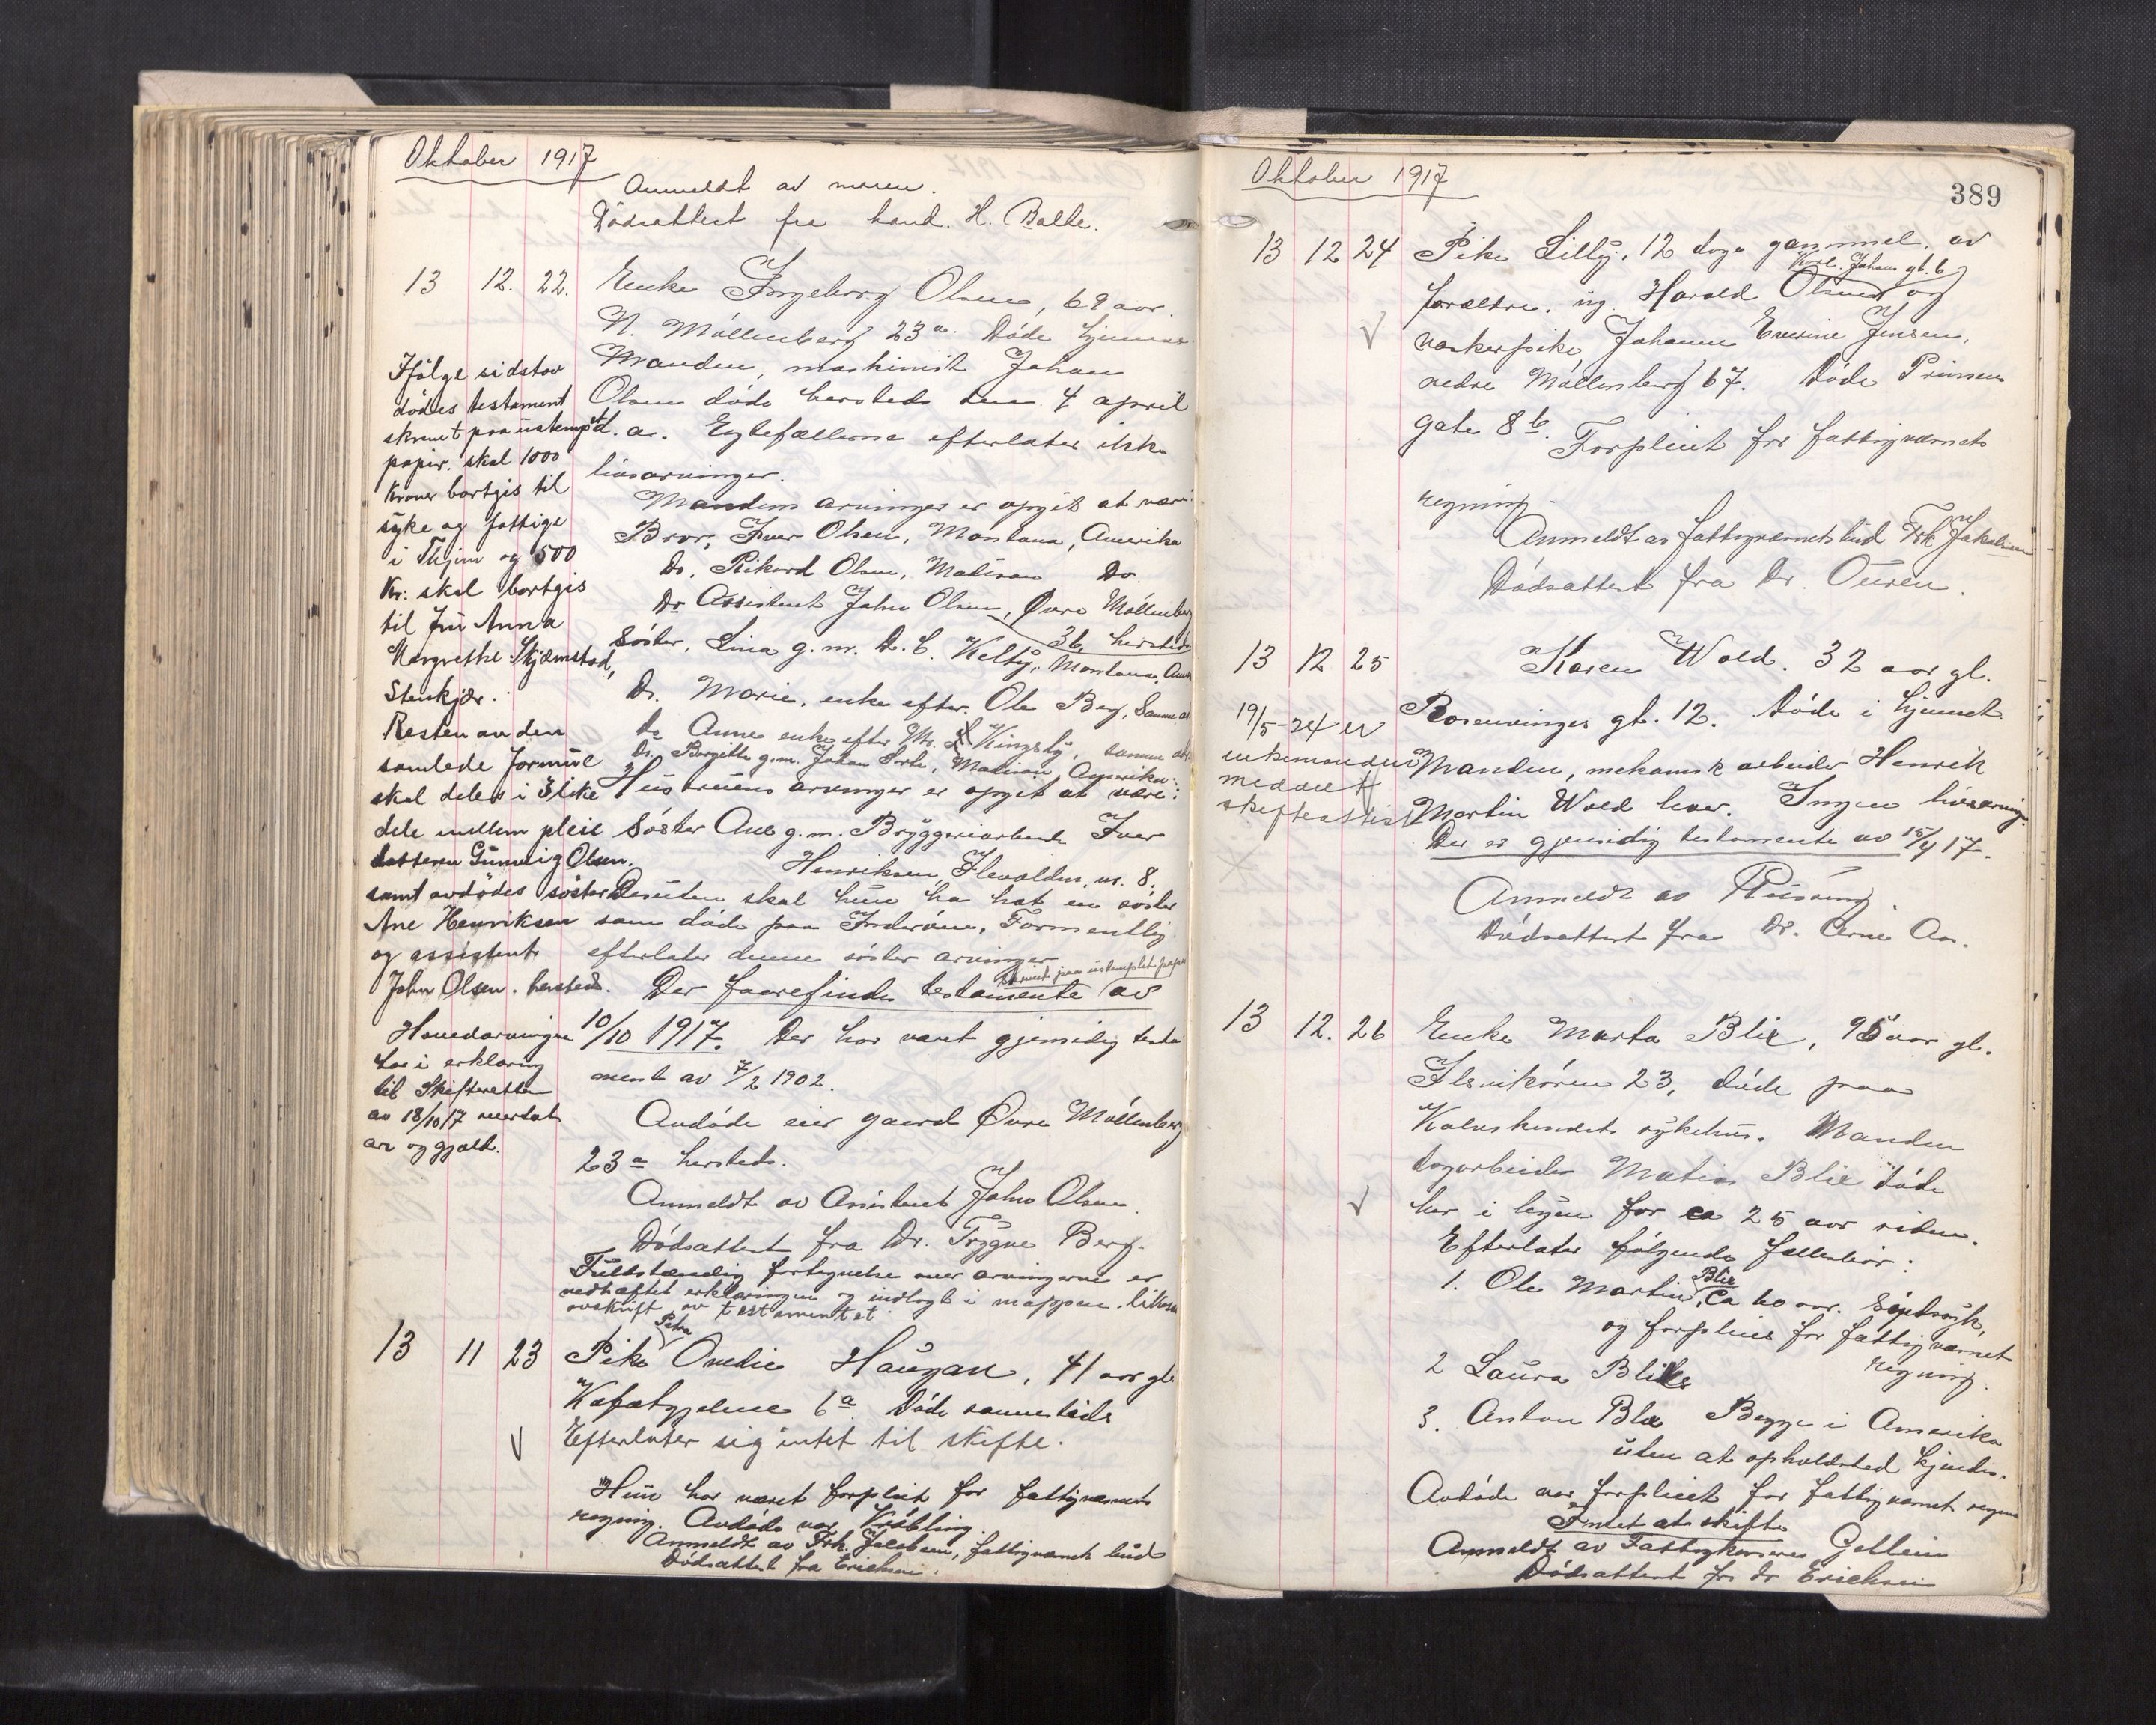 Oktober 1917
Anmeldt av moren.
Dödsattest fra kand. H. Balke.
13 12. 22. Enke Ingeborg Olsen, 69 aar.
N. Möllenberg 23a. Döde hjemme
Manden, maskinist Johan
Olsen döde hersteds den 4 april
d. a. Egtefællerne efterlater ikke
livsarvinger.
Mandens arvinger er opgit at være:
Bror, Iver Olsen, Montana, Amerika
Do. Rikard Olsen, Madison Do.
Do Assistent John Olsen, Övre Möllenberg
36 hersteds
Söster, Lina g. m. D. C. Kelly, Montana, Am
Do. Marie, enke efter Ole Berg, Samme
Do Anne enke efter Kingsly, samme
Do. Bergitte g.m. Johan , Madison, Amerika.
Hustruens arvinger er opgit at være:
Söster Ane g. m. Bryggeriarbeider Iver
Henriksen, Ilevolden nr. 8.
Desuten skal hun ha hat en söster
som döde paa Inderöen. Formentlig
efterlater denne söster arvinger
skrevet paa ustemplet papir
Der forefindes testamente av
10/10 1917. Der har været gjensidig testa
mente av 7/2 1902.
Avdöde eier gaard Övre Möllenberg
23a hersteds.
Anmeldt av Assistent John Olsen.
Dödsattest fra Dr. Trygve Berg.
Fuldstændig fortegnelse over arvingerne er
vedhæftet erklæringen og indlagt i mappen. likesaa
avskrift av testamentet.
Ifölge sidstav
dödes testament
skrevet paa ustemplet
papir, skal 1000
kroner bortgis til
syke og fattige
i Thjem og 500
Kr. skal bortgis
til fru Anna
Margrethe Skjæmstad,
Stenkjær.
Resten av den
samlede formue
skal deles i 3 like
dele mellem pleie
datteren Gunvig Olsen.
samt avdödes söster
Ane Henriksen
og assistent
John Olsen. hersteds.
Hovedarvingene
har i erklæring
til Skifteretten
av 18/10 17 overtat
arv og gjæld.
13 11 23 Pike Petra Ovedie Haugan, 41 aar gl
6a. Döde sammesteds
Efterlater sig intet til skifte.
Hun har været forpleiet for fattigvæsnets
regning. Avdöde var Kröbling.
Anmeldt av Frk. Jakobsen, fattigvæsnets bud
Dödsattest fra Erichsen.
Oktober 1917
389
13 12 24 Pike Lilly, 12 dage gammel, av
Karl Johans gt. 6
forældre, ug. Harald Olsen og
vaskerpike Johanne Everine Jensen,
nedre Möllenberg 67. Döde Prinsens
gate 8b. Forpleiet for fattigvæsnets
regning.
Anmeldt av fattigvæsnets bud Frk Jakobsen
Dödsattest fra Dr. Ouren.
13 12 25 Karen Wold. 32 aar gl.
Rosenvinges gt. 12. Döde i hjemmet
Manden, mekanisk arbeider Henrik
Martin Wold lever. Ingen livsarving.
Der er gjensidig testamente av 15/4 17.
Anmeldt av
Dödsattest fra Dr. Arne Aas.
19/5-24 er
enkemanden
meddelt
skifteattest
13 12. 26 Enke Marta Blix, 95 aar gl.
Ilsvikören 23, döde paa
Kalvskindets sykehus. Manden
dagarbeider Matias Blix döde
her i byen for ca 25 aar siden.
Efterlater fölgende fællesbörn:
1. Ole Martin Blix, ca 60 aar. Sindssyk,
og forpleies for fattigvæsnets
regning.
2 Laura Blix
3. Anton Blix Begge i Amerika
uten at opholdsted kjendes.
Avdöde var forpleiet for fattigvæsnets regning
Intet at skifte
Anmeldt av Fattigkasserer Gellein
Dödsattest fra dr Erichsen